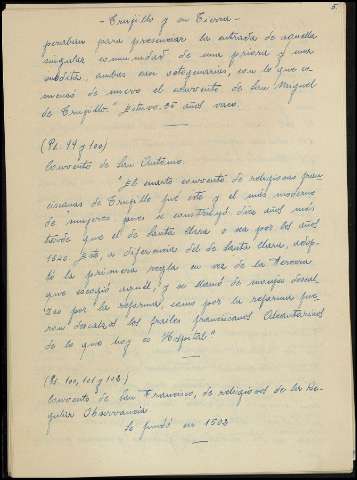 5.
- Trujillo y su Tierra -
peraban para presenciar la entrada de aquella
singular comunidad de una priora y una
súbdita, ambas casi octogenarias, con lo que co-
menzó de nuevo el convento de San Miguel
de Trujillo." Estuvo 25 años vacío.
(Pg. 99 y 100)
Convento de San Antonio.
"El cuarto convento de religiosas fran-
ciscanas de Trujillo fué éste y el más moderno
de mujeres, pues se construyó diez años más
tarde que el de Santa Clara o sea por los años
1540. Este, a diferencia del de Santa Clara, adop-
tó la primera regla en vez de la tercera
que escogió aquel, y se llamó de monjas descal-
zas por la reforma, como por la reforma fue-
ron descalzos los frailes franciscanos Alcantarinos
de lo que hoy es Hospital."
(Pg. 100, 101 y 102)
Convento de San Francisco, de religiosos de la Re-
gular Observancia
Se fundó en 1502